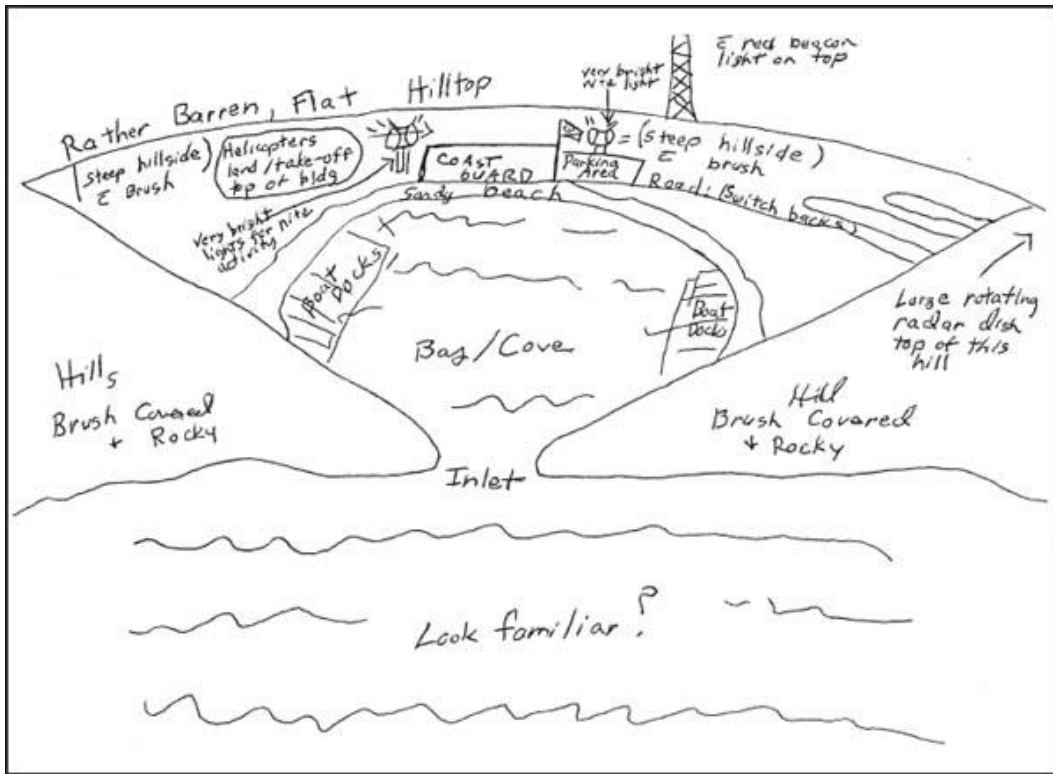 c̄ red beacon
light on top
very bright
nite light
Rather Barren, Flat Hilltop
(steep hillside)
c̄ Brush
Helicopters
land/take-off
top of bldg
COAST
GUARD
Parking
Area
= (steep hillside)
c̄ brush
Sandy beach
Road: (Switch backs)
very bright
lights for nite
activity
Boat
Docks
Boat
Docks
Bay/Cove
Large rotating
radar dish
top of this
hill
Hills
Brush Covered
+ Rocky
Hill
Brush Covered
+ Rocky
Inlet
Look familiar?